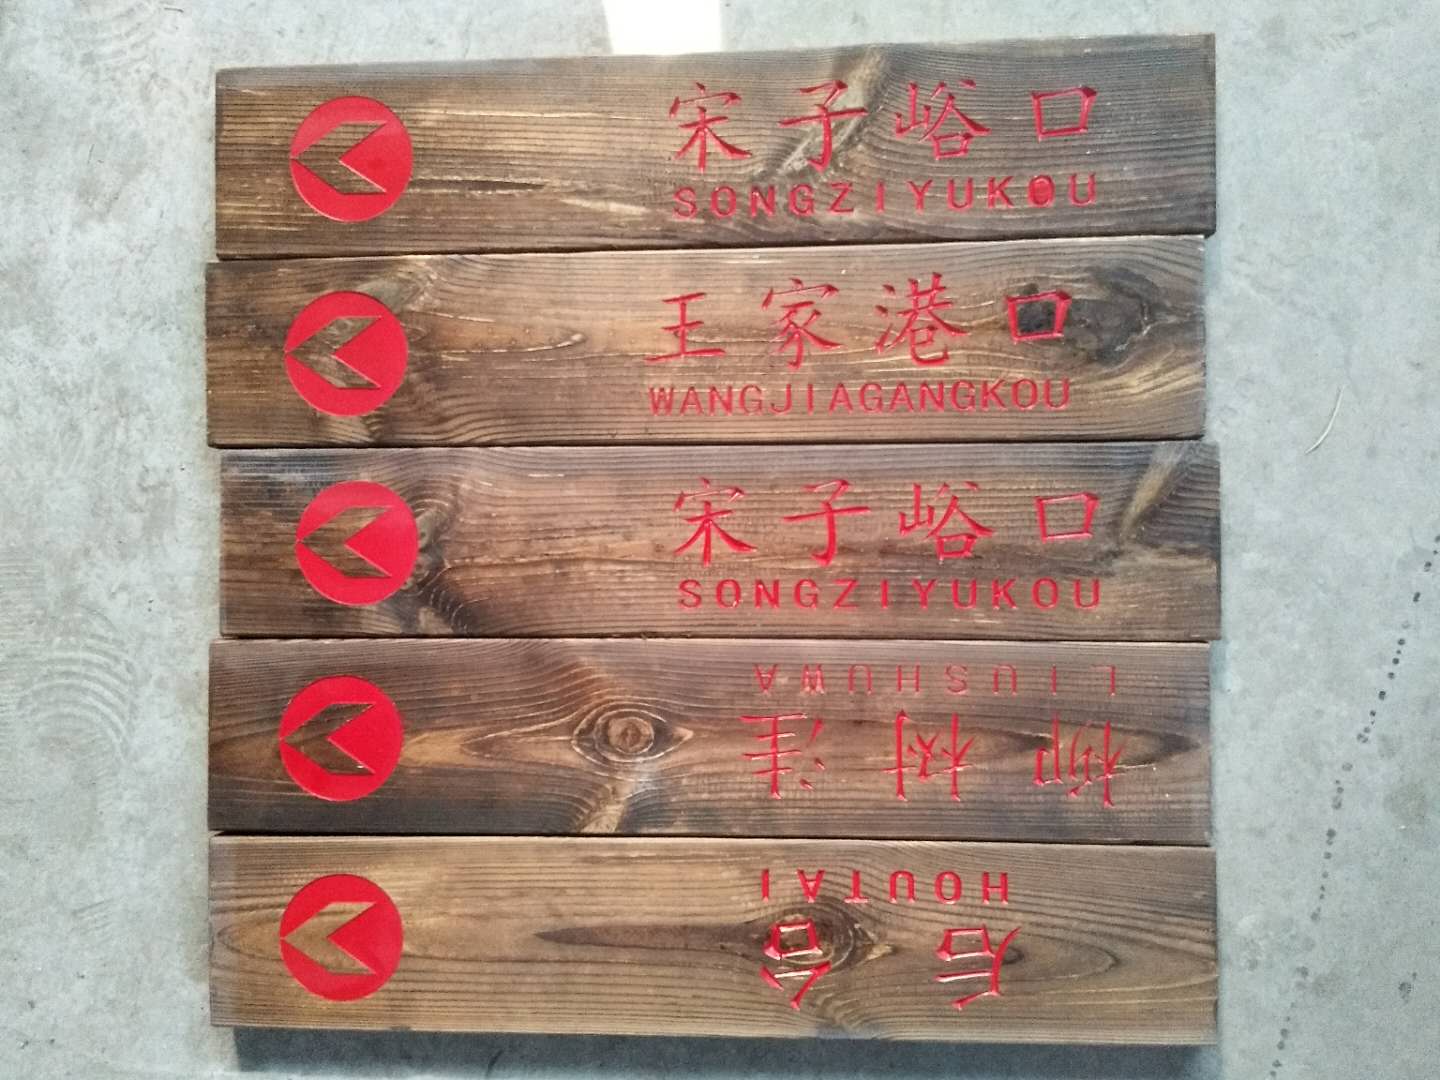 宋子峪口
SONGZIYUKOU
王家港口
WANGJIAGANGKOU
宋子峪口
SONGZIYUKOU
柳树洼
LIUSHUWA
后台
HOUTAI